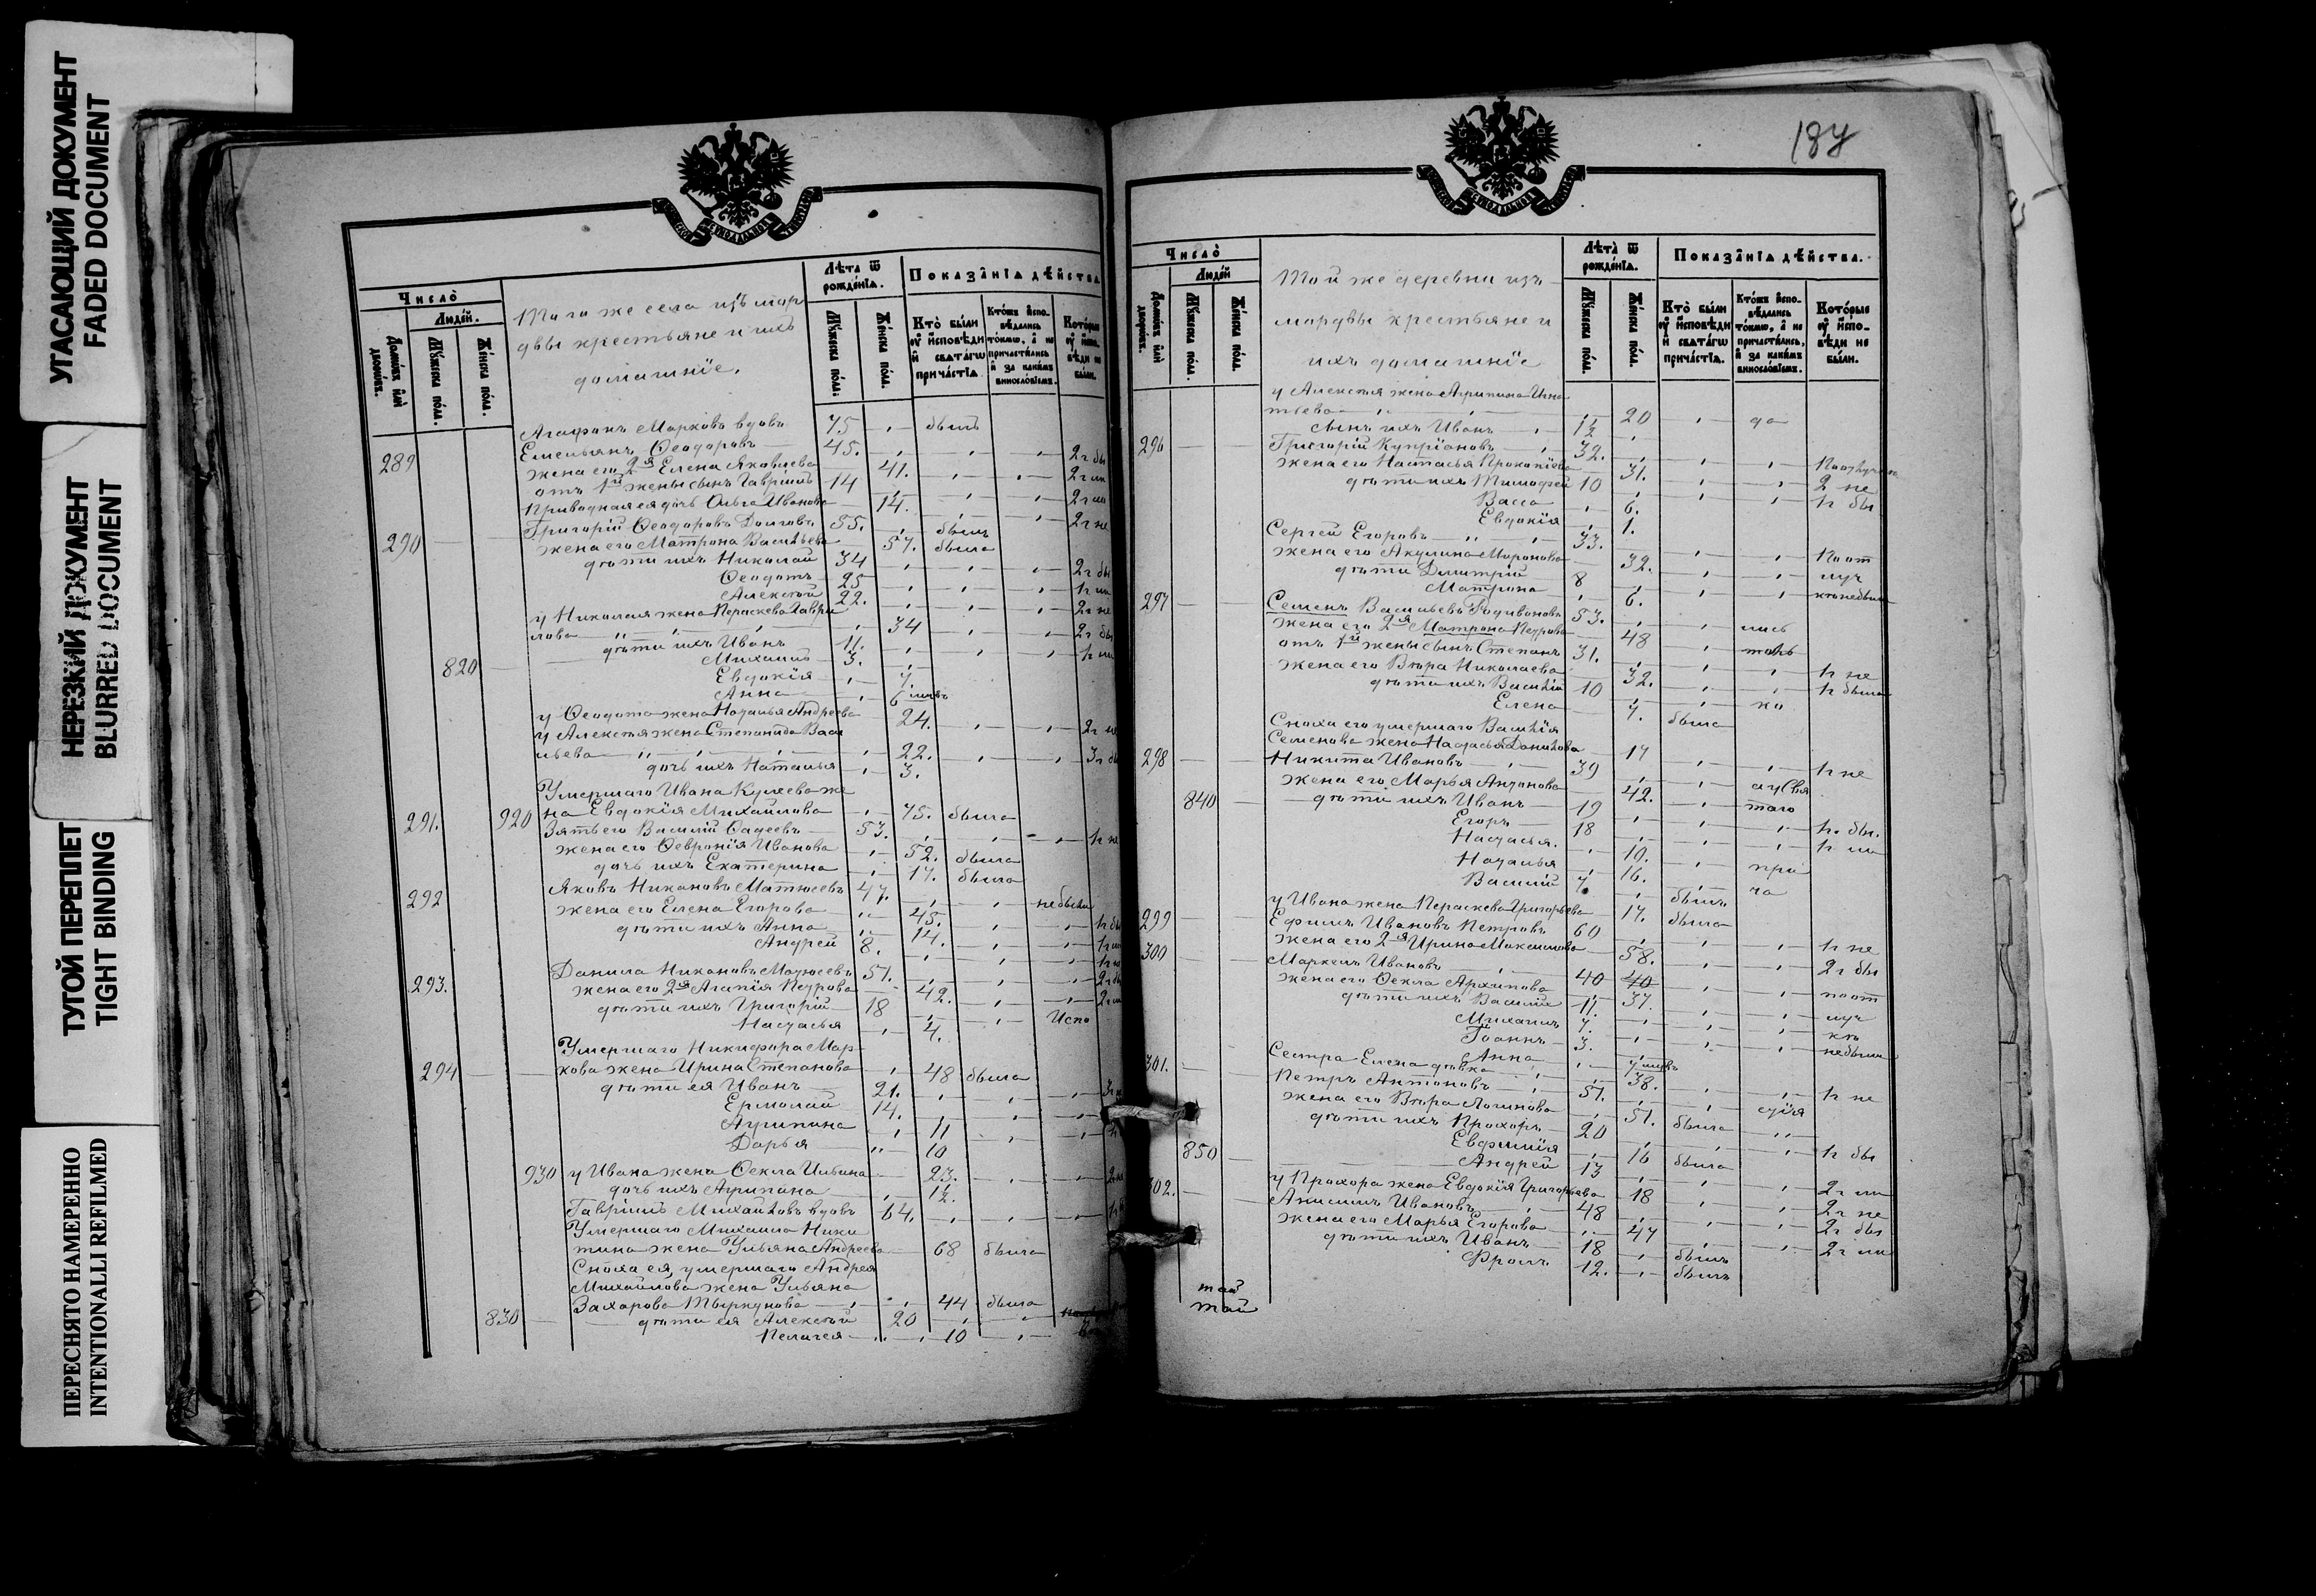 УГАСАЮЩИЙ ДОКУМЕНТ
FADED DOCUMENT
НЕРЕЗКИЙ ДОКУМЕНТ
BLURRED DOCUMENT
ТУГОЙ ПЕРЕПЛЕТ
TIGHT BINDING
ПЕРЕСНЯТО НАМЕРЕННО
INTENTIONALLI REFILMED
Число
Людей.
Домовъ или дворовъ.
Мужеска пола.
Женска пола.
Того же села изъ мор
двы крестьяне и ихъ
домашніе.
Лѣта ѿ рожденія.
Мужеска пола.
Женска пола.
Показанія дѣйства.
Кто были у исповѣди и святагѡ причастія.
Агафонъ Марковъ вдовъ 75 былъ
289 Емельянъ Ѳеодоровъ 45.
жена его 2я Елена Яковлева 41.
отъ 1й жены сынъ Гавріилъ 14
Приводная ея дочь Ольга Иванова 14.
290 Григорій Ѳеодоровъ Долговъ 55. былъ
жена его Матрона Васильева 57. была
дѣти ихъ Николай 34
Ѳеодотъ 25
Алексѣй 22.
у Николая жена Параскева Гаври
лова 34
дѣти ихъ Иванъ 11.
820 Михаилъ 3.
Евдокія 7.
Анна 6
у Ѳеодота жена Наталья Андреева 24.
у Алексѣя жена Степанида Васи
льева 22.
дочь ихъ Наталья 3.
Умершаго Ивана жe
291. 920 на Евдокія Михайлова 75. была
Зять его Василій Фадеевъ 53.
жена его Ѳевронія Иванова 52. была
дочь ихъ Екатерина 17. была
292 Яковъ Никоновъ Матюсевъ 47. небыли
жена его Елена Егорова 45.
дѣти ихъ Анна 14.
Андрей 8.
293. Данила Никоновъ Матюсевъ 51.
жена его 2я Агапія Петрова 42.
дѣти ихъ Григорій 18 Испо
Настасья 4.
Умершаго Никифора Мар
294 кова жена Ирина Степанова 48 была
дѣти ея Иванъ 21.
Ермолай 14.
Агрипина 11
Дарья 10
930 у Ивана жена Ѳекла Ильина 23.
дочь ихъ Агрипина 1/2.
Гавріилъ Михайловъ вдовъ 64.
Умершаго Михаила Ники
тина жена Ульяна Андреева 68 была
Сноха ея, умершаго Андрея
Михайлова жена Ульяна
Захарова 44 была
830 дѣти ея Алексѣй 20
Пелагея 10
187
Число
Людей
Домовъ или дворовъ.
Мужеска пола.
Женска пола.
Той же деревни изъ
мордвы крестьяне и
ихъ домашніе
Лѣта ѿ рожденія.
Мужеска пола.
Женска пола.
Показанія дѣйства.
Кто были у исповѣди и святагѡ причастія.
Ктожъ исповѣдались токмѡ, а не причастились, и за какимъ винословіемъ.
Которые у исповѣди не были.
у Алексѣя жена Агрипина Игна
тьева 20 до
сынъ ихъ Иванъ 1/2
296 Григорій Купріановъ 32.
жена его Настасья Прокопіева 31. 2 не
дѣти ихъ Тимофей 10
Васса 6.
Евдокія 1.
Сергей Егоровъ 33. По от
жена его Акулина Миронова 32. луч
дѣти Димитрій 8
Матрона 6.
297 Семенъ Васильевъ Родивоновъ 53.
жена его 2я Матрона Петрова 48
отъ 1й жены сынъ Степанъ 31.
жена его Вѣра Николаева 32.
дѣти ихъ Василій 10
Елена 7. была
Сноха его умершаго Василія
Семенова жена Настасья Данилова 17
298 Никита Ивановъ 39
жена его Марья Антонова 42.
840 дѣти ихъ Иванъ 19 таго
Егоръ 18
Настасья. 10.
Наталья 16. при
Василій 7. былъ ча
у Ивана жена Параскева Григорьева 17. была
299 Ефимъ Ивановъ Петровъ 60
жена его 2я Ирина Максимова 58.
300 Маркелъ Ивановъ 40 40
жена его Ѳекла Архипова 37. по от
дѣти ихъ Василій 11. луч
Михаилъ 7. кѣ
Іоаннъ 3. небыли
Анна 7
Сестра Елена дѣвка 38.
301. Петръ Антоновъ 51.
жена его Вѣра Логинова 51. была
дѣти ихъ Прохоръ 20
Евфимія 16 была
850 Андрей 13
у Прохора жена Евдокія Григорьева 18
302. Анисимъ Ивановъ 48
жена его Марья Егорова 47
дѣти ихъ Иванъ 18 былъ
Фролъ 12. былъ